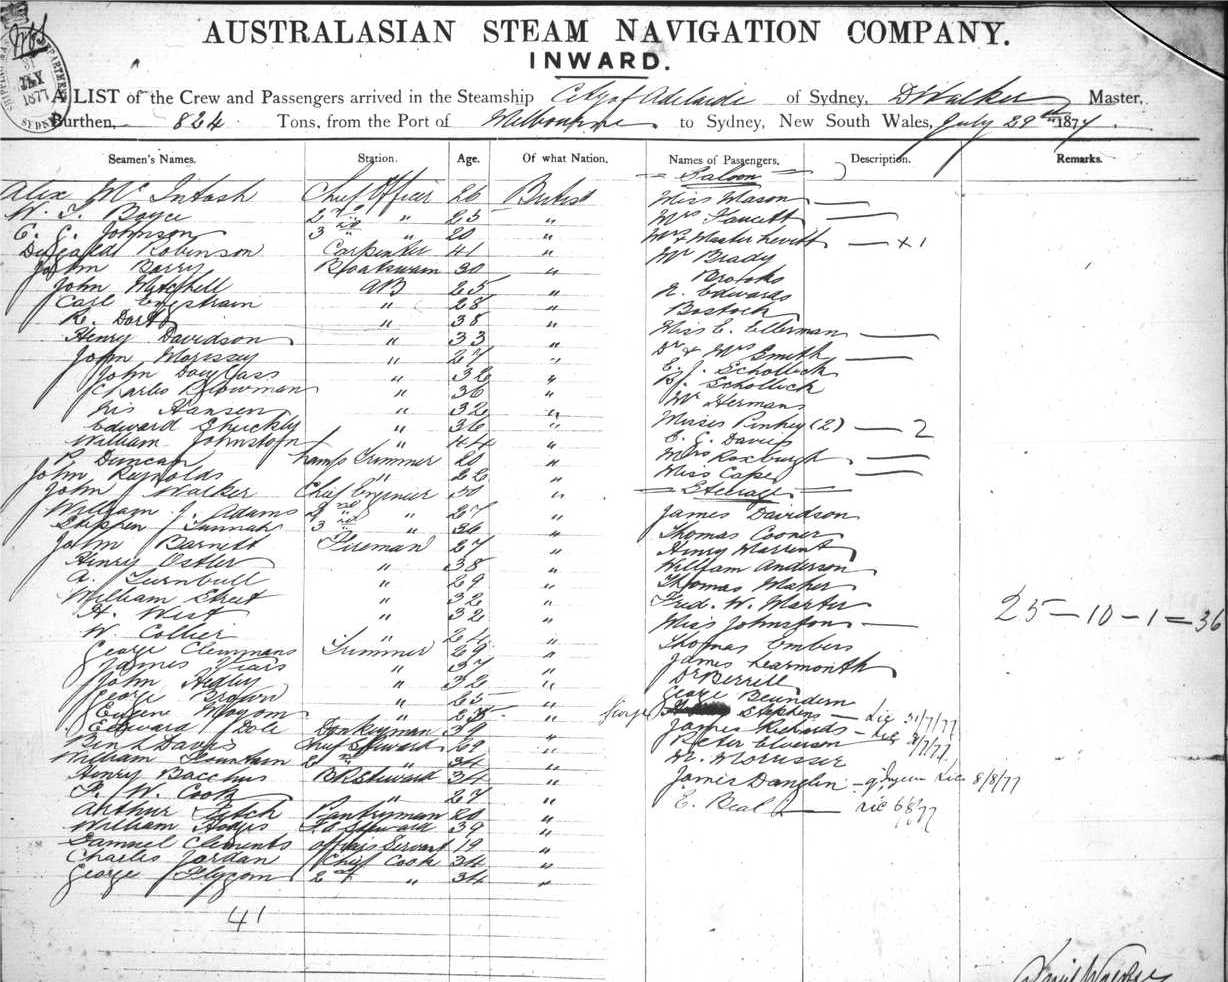 AUSTRALASIAN STEAM NAVIGATION COMPANY.
INWARD.
A LIST of the Crew and Passengers arrived in the Steamship City of Adelaide of Sydney, D Walker Master,
Burthen, 824 Tons, from the Port of Melbourne to Sydney, New South Wales, July 29th 1877
Seamen's Names. Station. Age. Of what Nation. Names of Passengers. Description. Remarks.
Saloon
Alex Mc Intosh Chief Officer 26 British Miss Mason
W. T. Boyce 2nd " 25 " Mrs Faucett
C. G. Johnson 3rd " 20 " Mrs & Master Levitt — x 1
Dugald Robinson Carpenter 41 " Mr Brady
John Barry Boatswain 30 " Brooks
John Mitchell AB 25 " N. Edwards
Carl Engstrain " 28 " Bostock
R. Dorto " 38 " Miss E. Ellerman
Henry Davidson " 33 "
John Morissey " 27 " Dr & Mrs Smith
John Douglass " 32 " E. J. Schollick
Charles Blowman " 36 " B. J. Schollick
Hansen " 32 " Mr Hermans
Edward Shuckly " 36 " Misses Pinkey (2) — 2
William Johnston " 44 " E. E. Davies
P. Duncan Lamp Trimmer 20 " Mrs Roxburgh
John Reynolds " 22 " Miss Cape
John Walker Chief Engineer 30 " Steerage
William J. Adams 2nd " 27 " James Davidson
Stephen Tunnah 3rd " 36 " Thomas Cooner
John Barnett Fireman 27 " Henry Warrent
Henry Ostler " 38 " William Anderson
A. Turnbull " 29 " Thomas Maher
William Street " 32 " Fred. W. Marter
H. West " 32 " Miss Johnstons — 25 — 10 — 1 = 36
W. Collier " 24 " Thomas Embers
George Clemmans Trimmer 29 " James Learmonth
James Viars " 37 " Dr Berrell
John Hedley " 32 " George Beundern
George Brown " 25 " George Stephens — Lic 31/7/77
Eugene Moyom " 25 " James Richards — Lic 31/7/77
Edward Dole Donkeyman 39 " Peter Elverson
Ben L Davis Chief Steward 69 " M. Morussee
William Fountain 2nd " 34 " James Danglin Lic 8/8/77
Henry Bacchus BR Steward 34 " E. Beal — Lic 6/8/77
F. W. Cook " 27 "
Arthur Latch Pantryman 20 "
William Hodges Steward 39 "
Samuel Clements Officers Servant 19 "
Charles Jordan Chief Cook 34 "
George Flyzom 2nd " 34 "
41